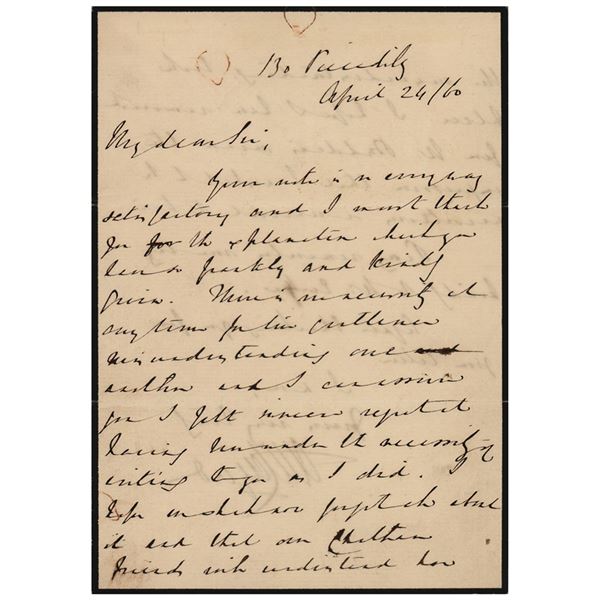 130 Piccadilly
April 24/60
My dear Sir,
Your note is in every way
satisfactory and I must thank
you for the explanation which you
have so frankly and kindly
given. There is no necessity at
any time for two gentlemen
misunderstanding one
another and I can assure
you I felt sincere regret at
having been under the necessity of
writing to you as I did. I
hope we shall now forget all about
it and that our Chatham
friends will understand how